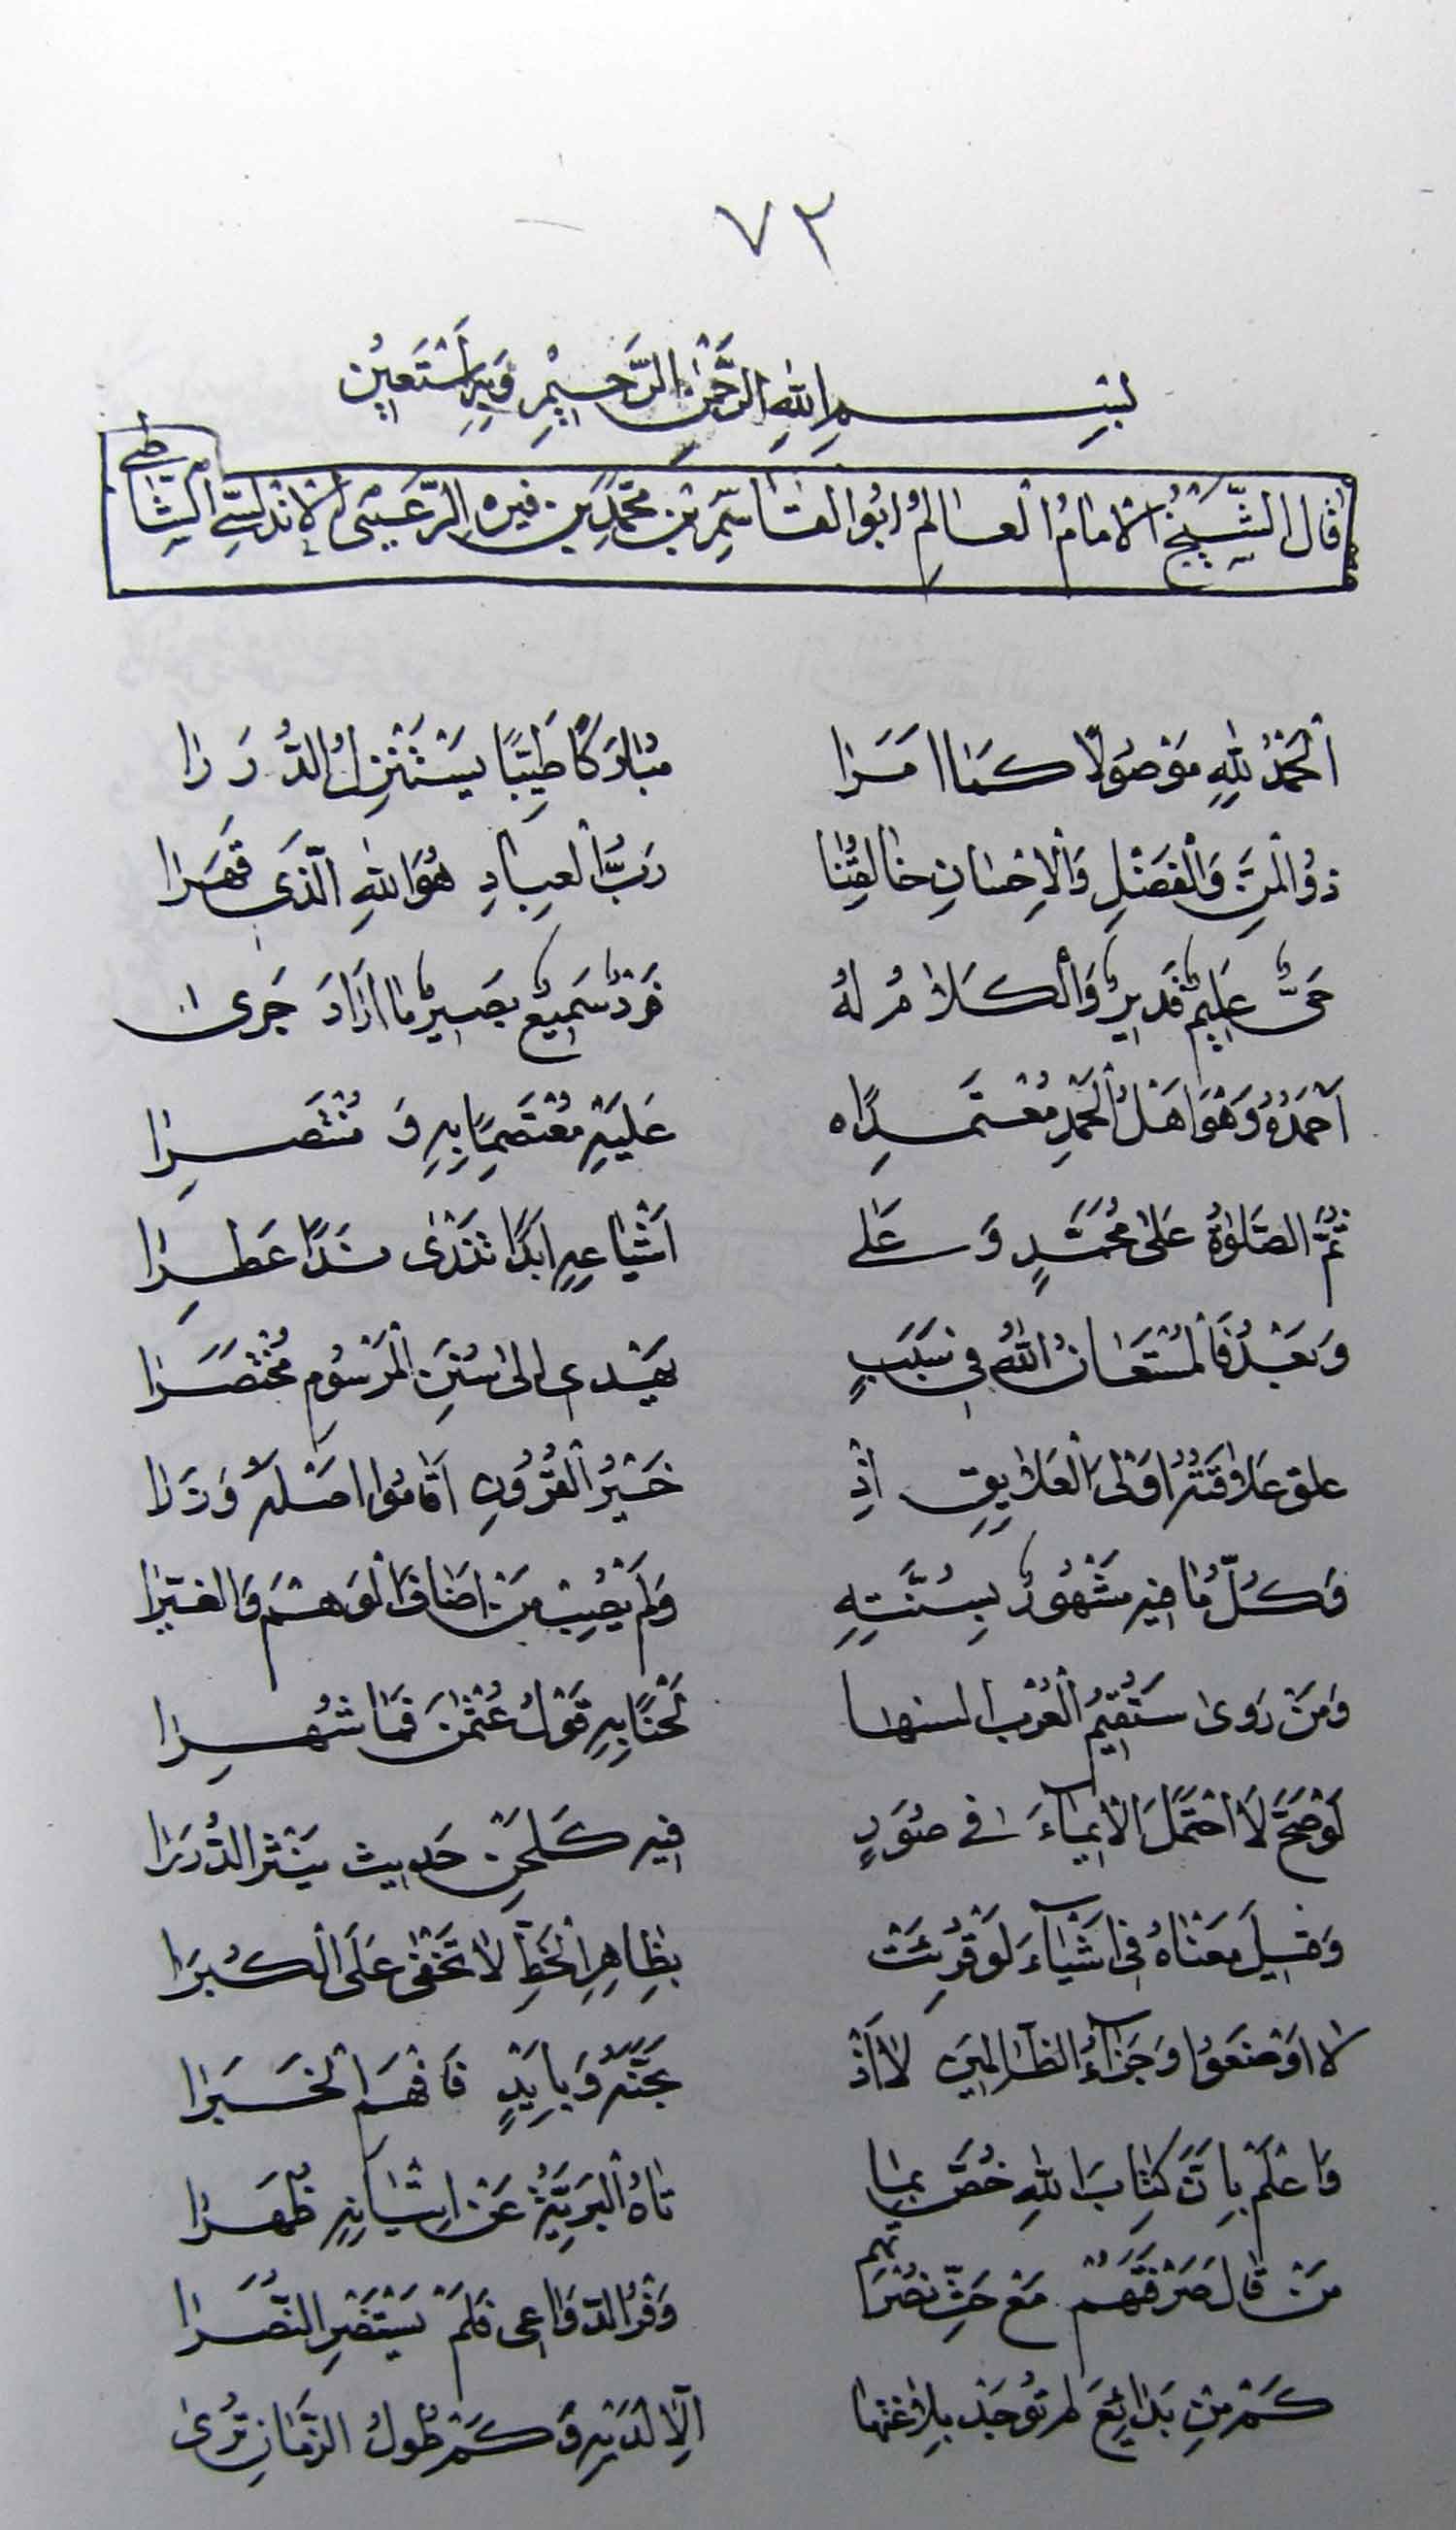 ٧٣
بِسْمِ اللهِ الرَّحْمٰنِ الرَّحِيْمِ وَبِهِ نَسْتَعِيْن
قال الشَّيْخُ الامامُ العالِمُ ابُو القاسِمِ بْن محمّدِ بن فيره الرّعَيْنى الاندلسي الشاطبى
اَلْحَمْدُ لِلّٰهِ مَوْصُولًا كَمَا اَمَرَا مُبَارَكًا طَيِّبًا يَسْتَنْزِلُ الدُّرَرَا
ذُو الْمَنِّ وَالْفَضْلِ وَالْاِحْسَانِ خَالِقُنَا رَبُّ الْعِبَادِ هُوَ اللهِ الَّذَى قَهَرَا
حَىٌّ عَلِيمٌ قَدِيرٌ وَالْكَلَامُ لَهُ فَرْدٌ سَمِيْعٌ بَصِيرٌ مَا اَرَادَ جَرىٰ
اَحْمَدُهُ وَهْوَ اَهْلُ الْحَمْدِ مُعْتَمِدًا عَلَيْهِ مُعْتَصِمًا بِهِ وَ مُنْتَصِرَا
ثُمَّ الصَّلوٰةُ عَلىٰ مُحَمَّدٍ وَ عَلٰى اَشْيَاعِهِ اَبَدًا تَنْدَى نَدًا عَطِرَا
وَ بَعْدُ فَالْمُسْتَعَانُ اللهُ فِى سَبَبٍ يَهْدِى اِلىٰ سَنَنِ الْمَرْسُومِ مُخْتَصَرَا
علق عَلَاقَتُهُ اَوْلَى الْعَلَايِقِ اِذْ خَيْرُ الْقُرُونِ اَقَامُوا اَصْلَهُ وَزَرَا
وَكُلُّ مَا فِيهِ مَشْهُورٌ بِسُنَّتِهِ وَلَمْ يُصِبْ مَنْ اَضَافَ الْوَهْمَ وَالغِيَرَا
وَمَنْ رَوىٰ سَتُقِيْمُ الْعُرْبُ السنها لَحْنًا بِهِ قَوْلُ عُثْمٰنَ فَمَا شُهِرَا
لَوْ صَحَّ لَاحْتَمَلَ الْاِيمَاءَ فِى صُوَرٍ فِيهِ كَلَحْنِ حَدِيثٍ يَنْثُرُ الدُّرَرَا
وَقِيلَ مَعْنَاهُ فِى اَشْيَآءَ لَوْ قُرِئَتْ بِظَاهِرِ الْخَطِّ لَا تَخْفىٰ عَلَى الْكُبَرَا
لَا اَوْضَعُوا وَ جَزَآءُ الظَّالِمِينَ لَاَاذْ بَحَنَّهُ وَ بِاَيْيدٍ فَافْهَمِ الْخَبَرَا
وَاعْلَمْ بِاَنَّ كِتَابَ اللهِ خُصَّ بِمَا تَاهُ الْبَرِيَّةُ عَنْ اِتْيَانِهِ ظُهَرَا
مَنْ قَالَ صَرْفَتُهُمْ مَعْ حَثِّ نُصْرَتِهِم وَفْرُ الدَّوَاعِى فَلَمْ يَسْتَنْصِرِ النُّصَرَا
كَمْ مِنْ بَدَائِعَ لم تُوجَدْ بَلَاغَتُهَا اِلَّا لَدَيْهِ وَ كَمْ طُولُ الزَّمَانِ تُرىٰ